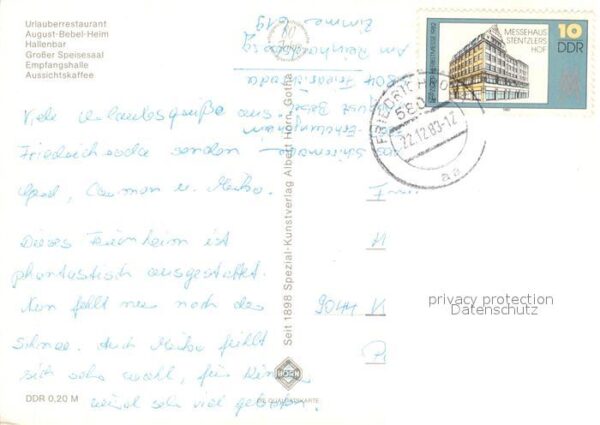 Urlauberrestaurant
August-Bebel-Heim
Hallenbar
Großer Speisesaal
Empfangshalle
Aussichtskaffee
Viele Urlaubsgrüße aus
Friedrichroda senden
u. Heiko.
Dieses Ferienheim ist
phantastisch ausgestattet.
Nun fehlt nur noch der
Schnee. Auch Heiko fühlt
sich sehr wohl, für Kinder
wird sehr viel geboten.
DDR 0,20 M
Seit 1898 Spezial-Kunstverlag Albert Horn, Gotha
HORN
Zimmer 619
Am Reinhardsberg
Friedrichroda
August Bebel
MESSEHAUS
STENTZLERS
HOF
10
DDR
FRIEDRICHRODA
22.12.83-17
aa
9044 K
privacy protection
Datenschutz